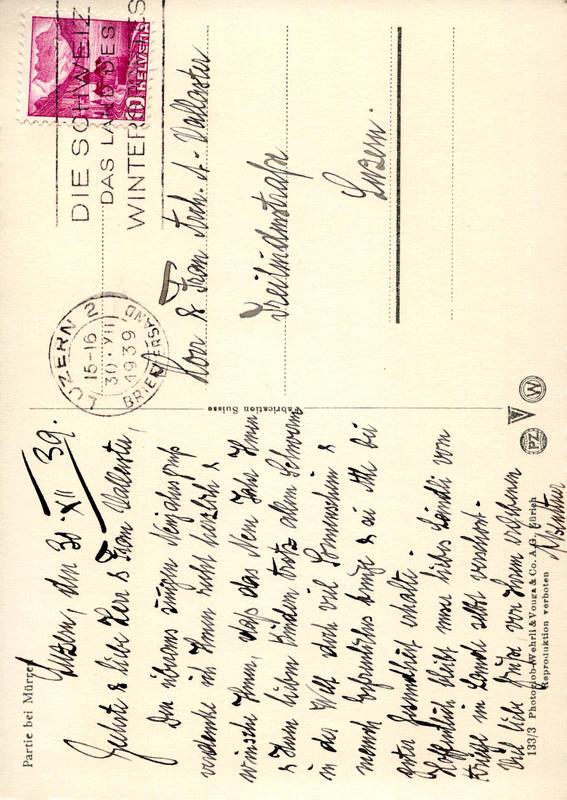 Partie bei Mürren
Luzern, den 30 XII 39.
Geehrte & liebe Herr & Frau Vallaster,
Den übrigens jungen Neujahrsgruß
verdanke ich Ihnen recht herzlich &
wünsche Ihnen, daß das Neue Jahr Ihnen
& Ihren lieben Kindern trotz allem Schweren
in der Welt doch viel Sonnenschein &
manch Erfreuliches bringe & sie Alle bei
guter Gesundheit erhalte.
Hoffentlich bleibt unser liebes Ländli vom
Kriege im Lande selbst verschont.
Viel liebe Grüße von Ihrem ergebenen
133/3 Photoglob-Wehrli & Vouga & Co. A.G. Zürich
Reproduktion verboten
Fabrication Suisse
PZ
V
W
LUZERN 2
15-16
30.XII
1939
BRIEFVERSAND
DIE SCHWEIZ
DAS LAND DES
WINTER
10
HELVETIA
Herr & Frau Arch. A. Vallaster
Dreilindenstraße
Luzern.